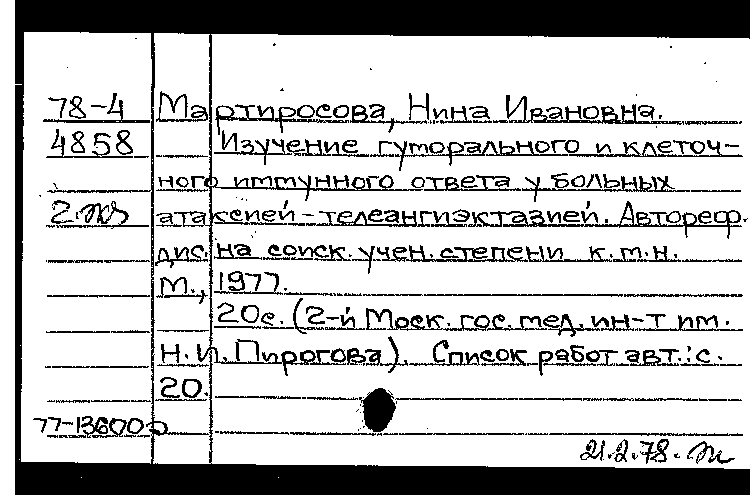 78-4 Мартиросова, Нина Ивановна.
4858 Изучение гуморального и клеточ-
ного иммунного ответа у больных
2 атаксией-телеангиэктазией. Автореф.
дис. на соиск. учен. степени к.м.н.
М., 1977.
20с. (2-й Моск. гос. мед. ин-т им.
Н.И. Пирогова). Список работ авт.: с.
20.
77-13600
21.2.78.